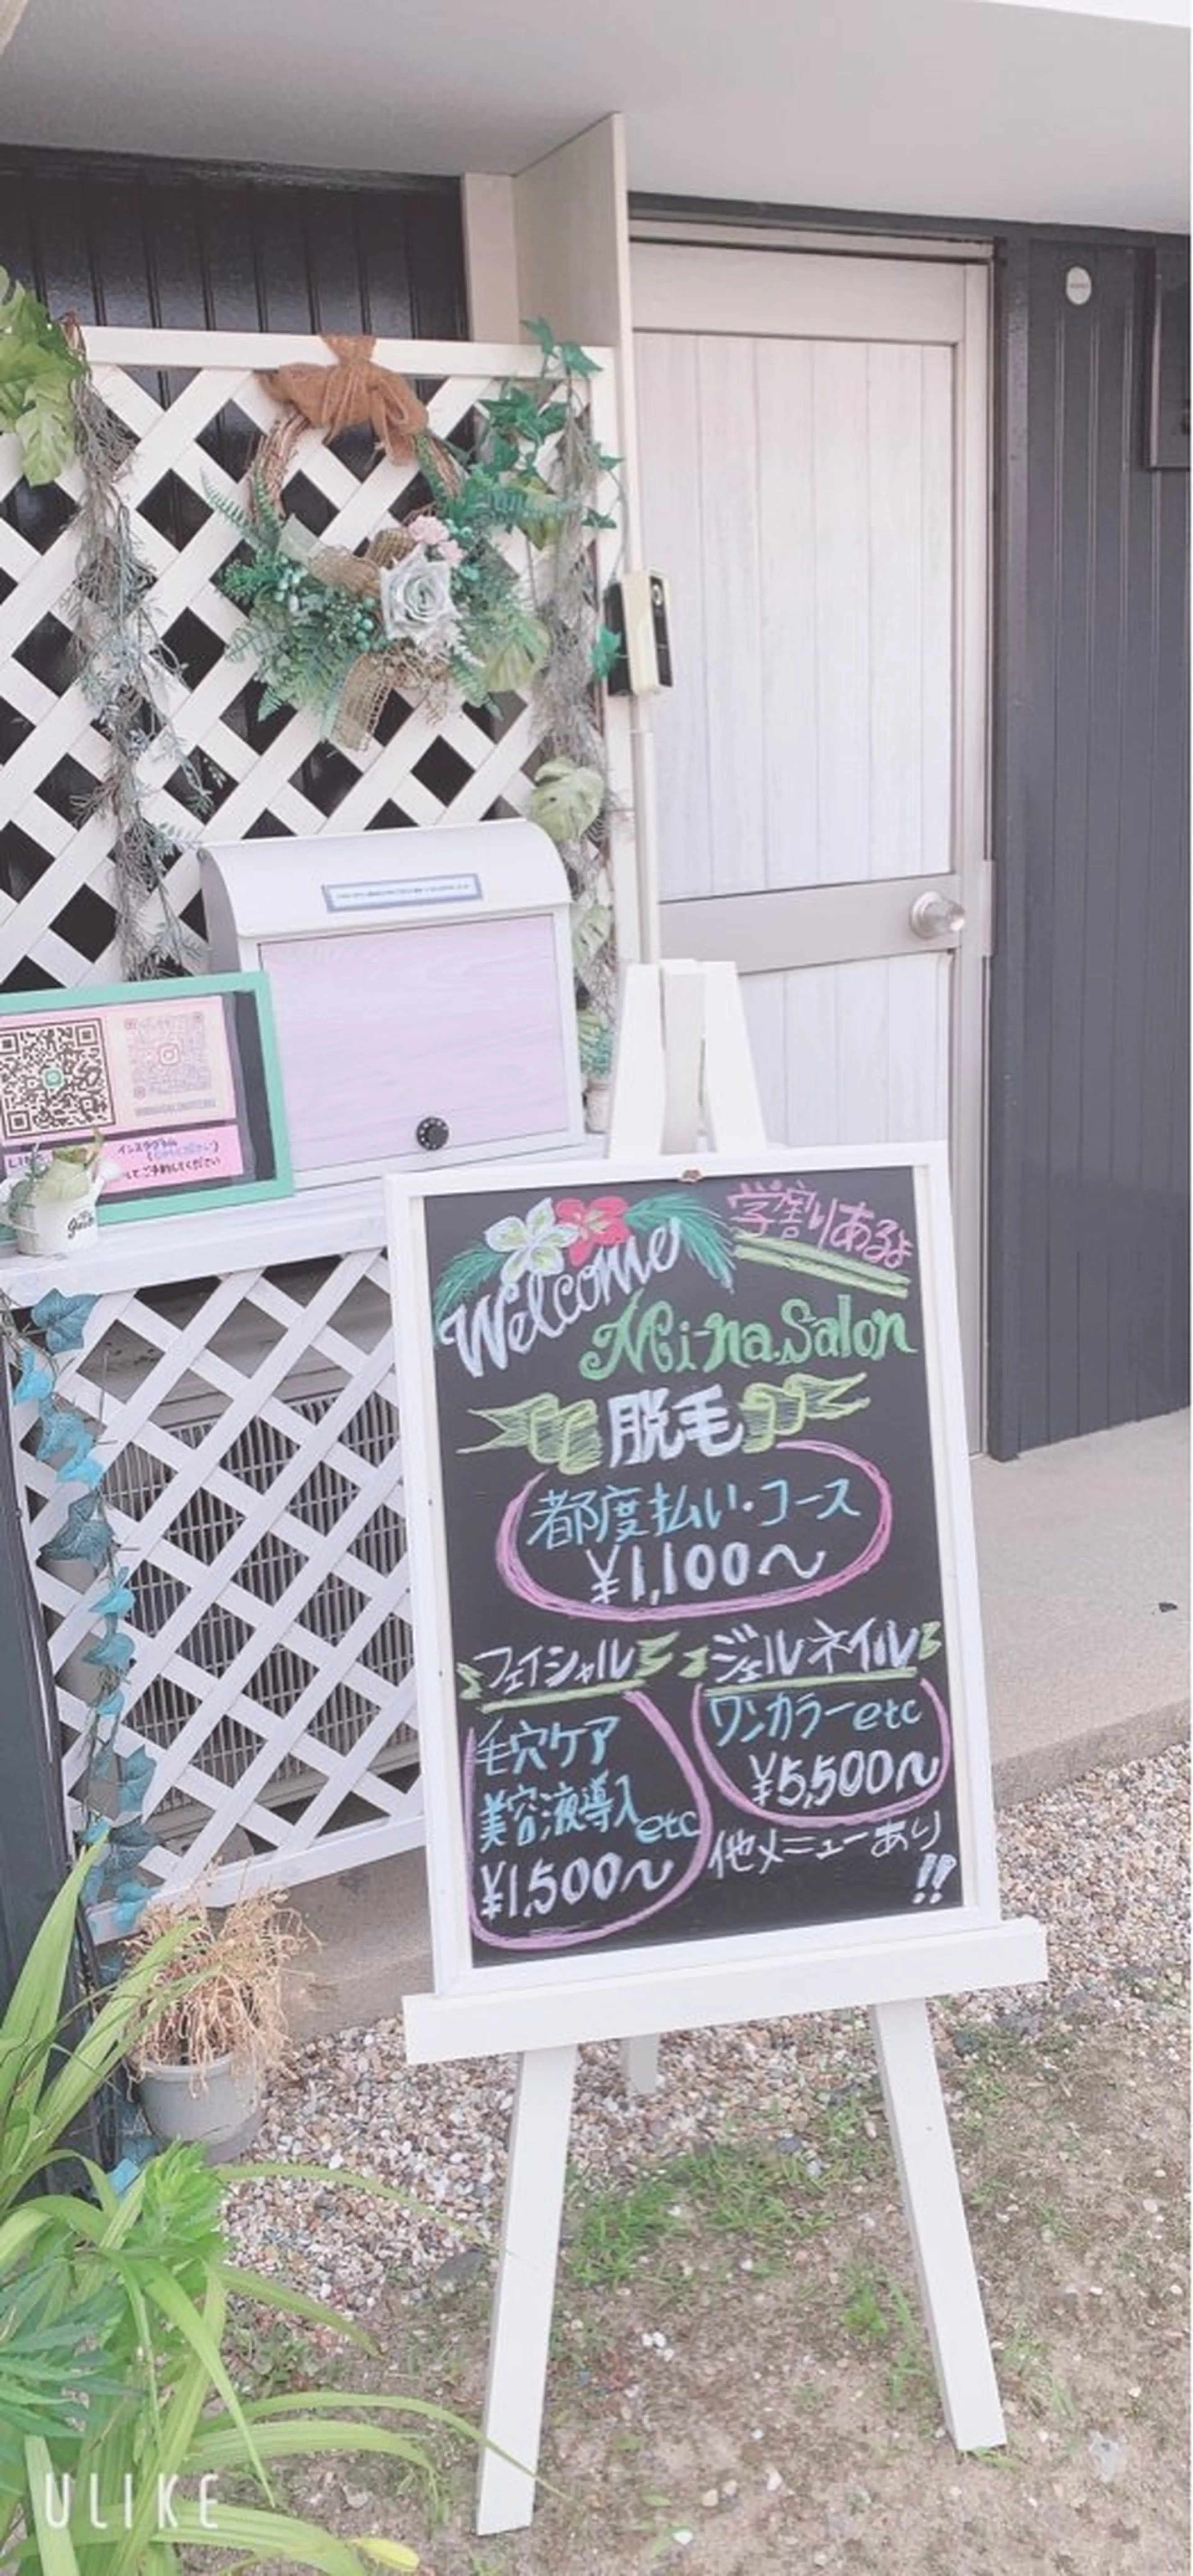 LINE
インスタグラム
てご予約してください
Welcome
学割りあるよ
Mi-na.Salon
脱毛
都度払い・コース
¥1,100〜
フェイシャル
毛穴ケア
美容液導入etc
¥1,500〜
ジェルネイル
ワンカラーetc
¥5,500〜
他メニューあり
!!
ULIKE